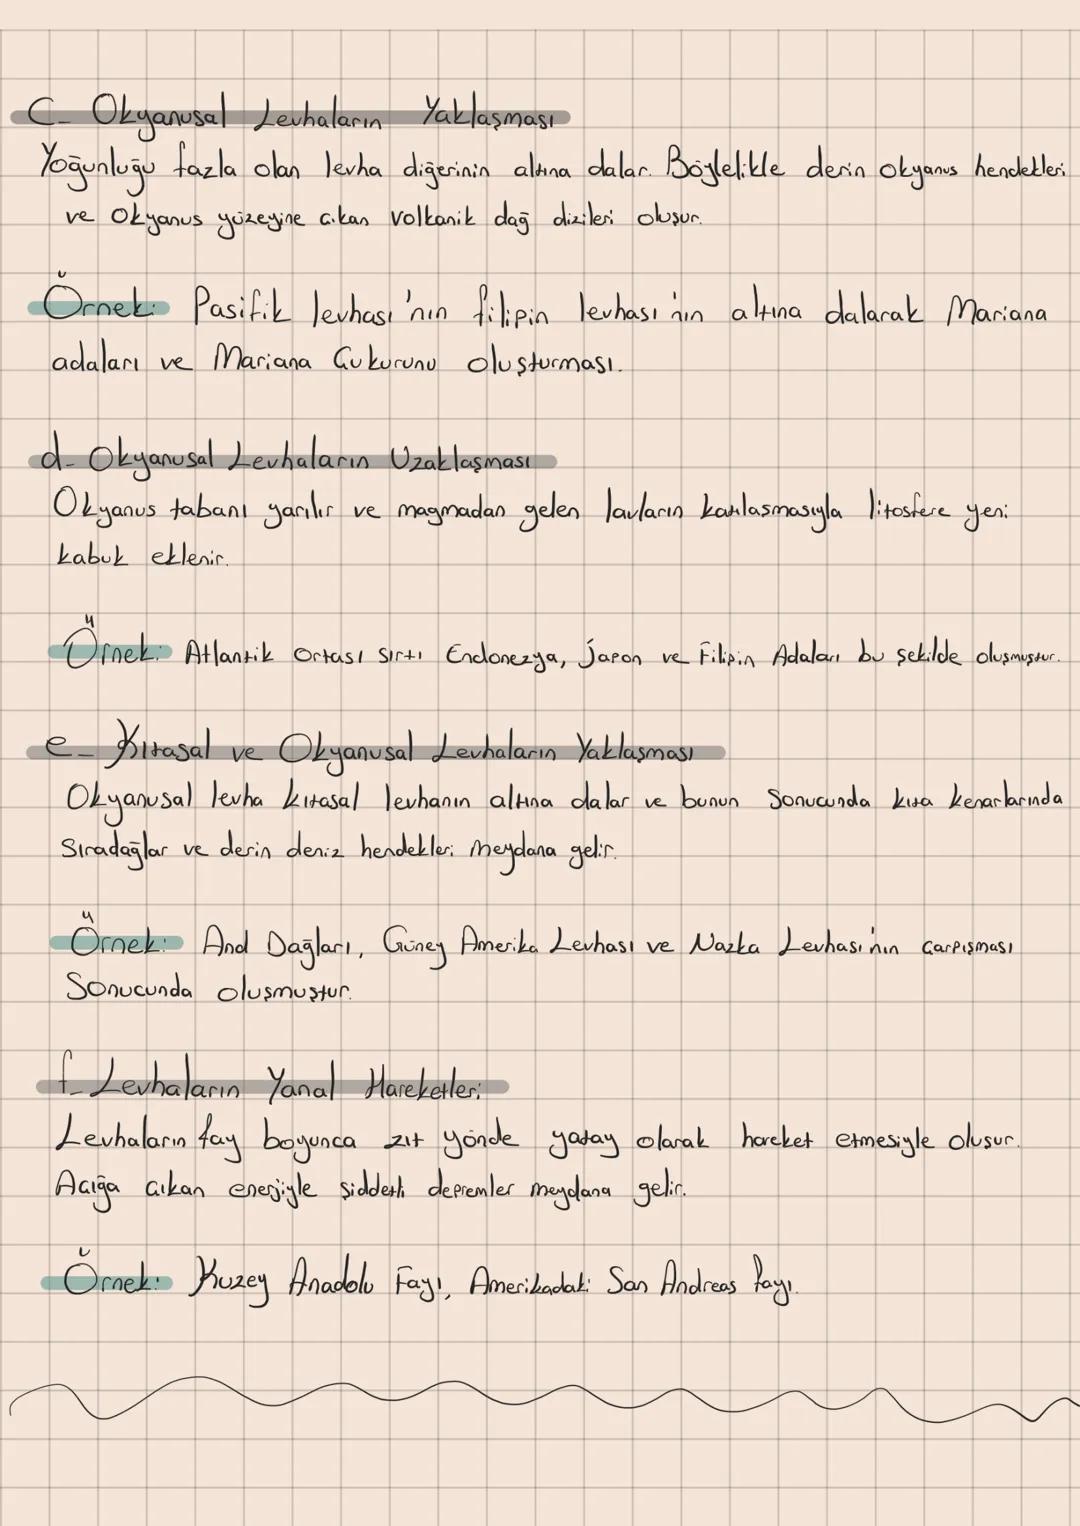 C- Okyanusal Levhaların Yaklaşması
Yoğunluğu fazla olan levha diğerinin altına dalar. Böylelikle derin okyanus hendekleri
ve Okyanus yüzeyine çıkan volkanik dağ dizileri oluşur.
Örnek: Pasifik levhası'nın filipin levhası'nın altına dalarak Mariana
adaları ve Mariana Çukurunu oluşturması.
d- Okyanusal Levhaların Uzaklaşması
Okyanus tabanı yarılır ve magmadan gelen lavların katılaşmasıyla litosfere yeni
kabuk eklenir.
Örnek: Atlantik Ortası Sırtı Endonezya, japon ve Filipin Adaları bu şekilde oluşmuştur.
e- Kıtasal ve Okyanusal Levhaların Yaklaşması
Okyanusal levha kıtasal levhanın altına dalar ve bunun Sonucunda kıta kenarlarında
Sıradağlar ve derin deniz hendekleri meydana gelir.
Örnek: And Dağları, Güney Amerika Levhası ve Nazka Levhası'nın Çarpışması
Sonucunda oluşmuştur.
f- Levhaların Yanal Hareketleri
Levhaların fay boyunca zıt yönde yatay olarak hareket etmesiyle oluşur.
Açığa çıkan enerjiyle şiddetli depremler meydana gelir.
Örnek: Kuzey Anadolu Fayı, Amerikadaki San Andreas fayı.